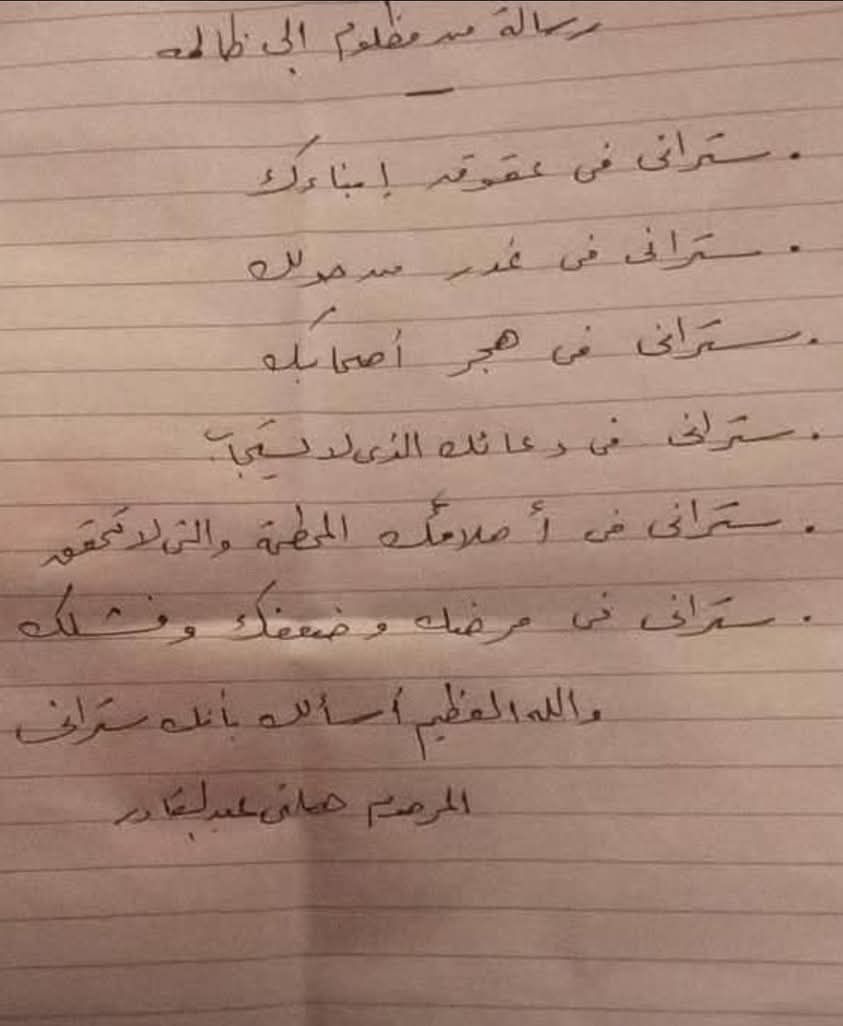 رسالة من مظلوم الى ظالمه
. ستراني في عقوق إبناءك
. ستراني في غدر من حولك
. ستراني في هجر أصحابك
. ستراني في دعائك الذي لا يستجاب
. ستراني في أحلامك المحطمة والتي لا تتحقق
. ستراني في مرضك وضعفك وفشلك
والله العظيم أسألك بأنك ستراني
المرحوم هاني عبد القادر